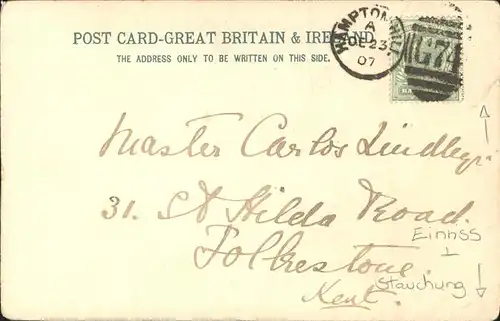 POST CARD-GREAT BRITAIN & IRELAND.
THE ADDRESS ONLY TO BE WRITTEN ON THIS SIDE.
HAMPTON HILL
A
DE 23
07
G74
Master Carlos Lindley.
31. St Hilda Road.
Folkestone.
Kent.
Einriss
Stauchung